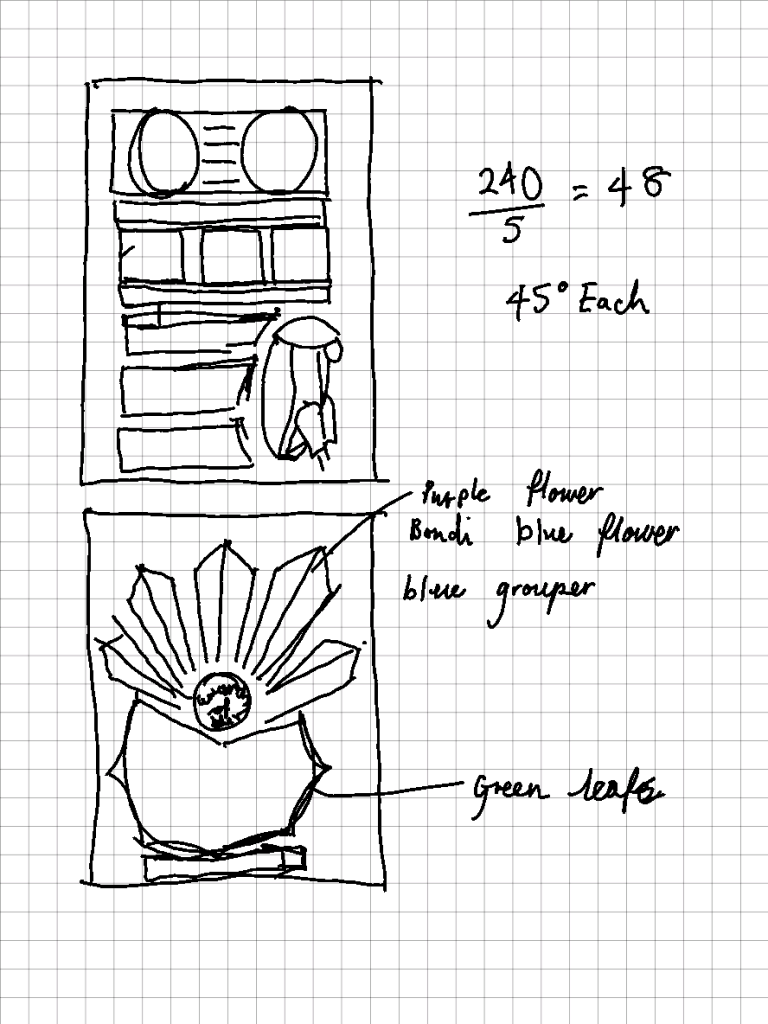 240
5
= 48
45° Each
Purple flower
Bondi blue flower
blue grouper
Green leafs